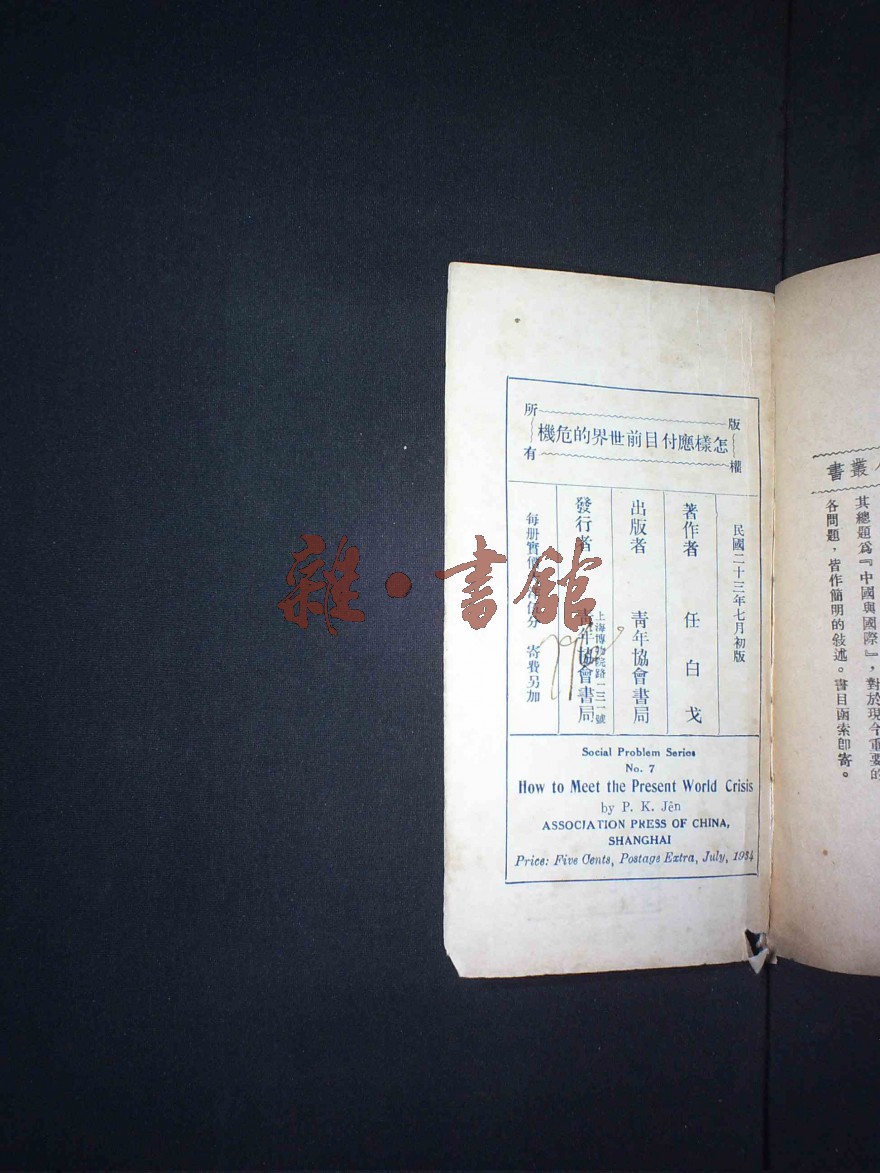 版權所有
怎樣應付目前世界的危機
民國二十三年七月初版
著作者 任白戈
出版者 青年協會書局
上海博物院路一三一號
發行者 青年協會書局
每册實價 伍分 寄費另加
Social Problem Series
No. 7
How to Meet the Present World Crisis
by P. K. Jên
ASSOCIATION PRESS OF CHINA,
SHANGHAI
Price: Five Cents, Postage Extra, July, 1934
叢書
其總題爲『中國與國際』，對於現今重要的
各問題，皆作簡明的敍述。書目函索卽寄。
雜·書館